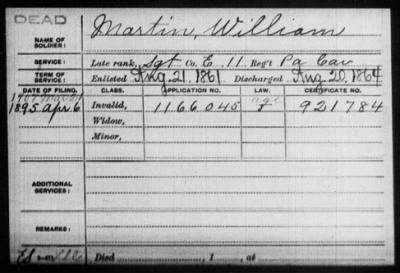 DEAD
NAME OF SOLDIER: Martin, William
SERVICE: Late rank, Sgt Co. E, 11 Reg't Pa Cav
TERM OF SERVICE: Enlisted Aug. 21, 1861 Discharged Aug 20, 1864
DATE OF FILING. CLASS. APPLICATION NO. LAW. CERTIFICATE NO.
1907 Mar 21 age
1895 Apr. 6 Invalid, 1166045 921784
Widow,
Minor,
ADDITIONAL SERVICES:
REMARKS:
Died , 1 , at